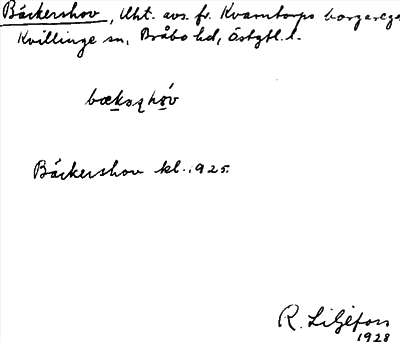 Bäckershov, lht. avs. fr. Kvarntorps borgareg
Kvillinge sn, Bråbo hd, Östgtl. l.
bæksʒhóv
Bäckershov kl. 1925.
R. Liljefors
1928